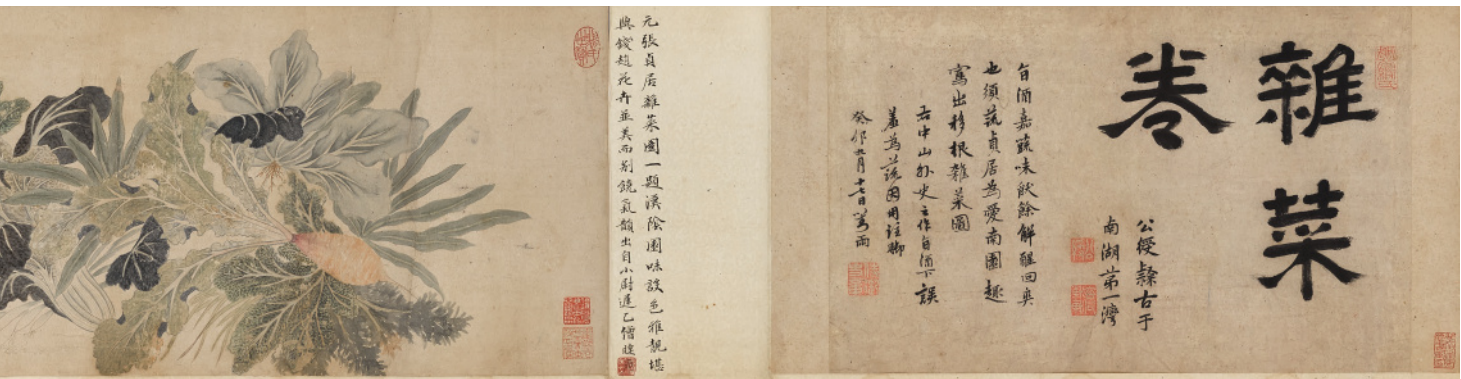 雜菜
卷
公綬隸古于
南湖第一灣
旨酒嘉蔬味猒餘解酲回爽
也須蔬貞居為愛南園趣
寫出移根雜菜圖
右中山外史主作旨酒下誤
羞為蔬因用註腳
癸卯九月十七日 雨
元張貞居雜菜圖一題漢陰園味設色雅靚堪
與錢趙花卉並美而別饒氣韻出自小尉遲乙僧